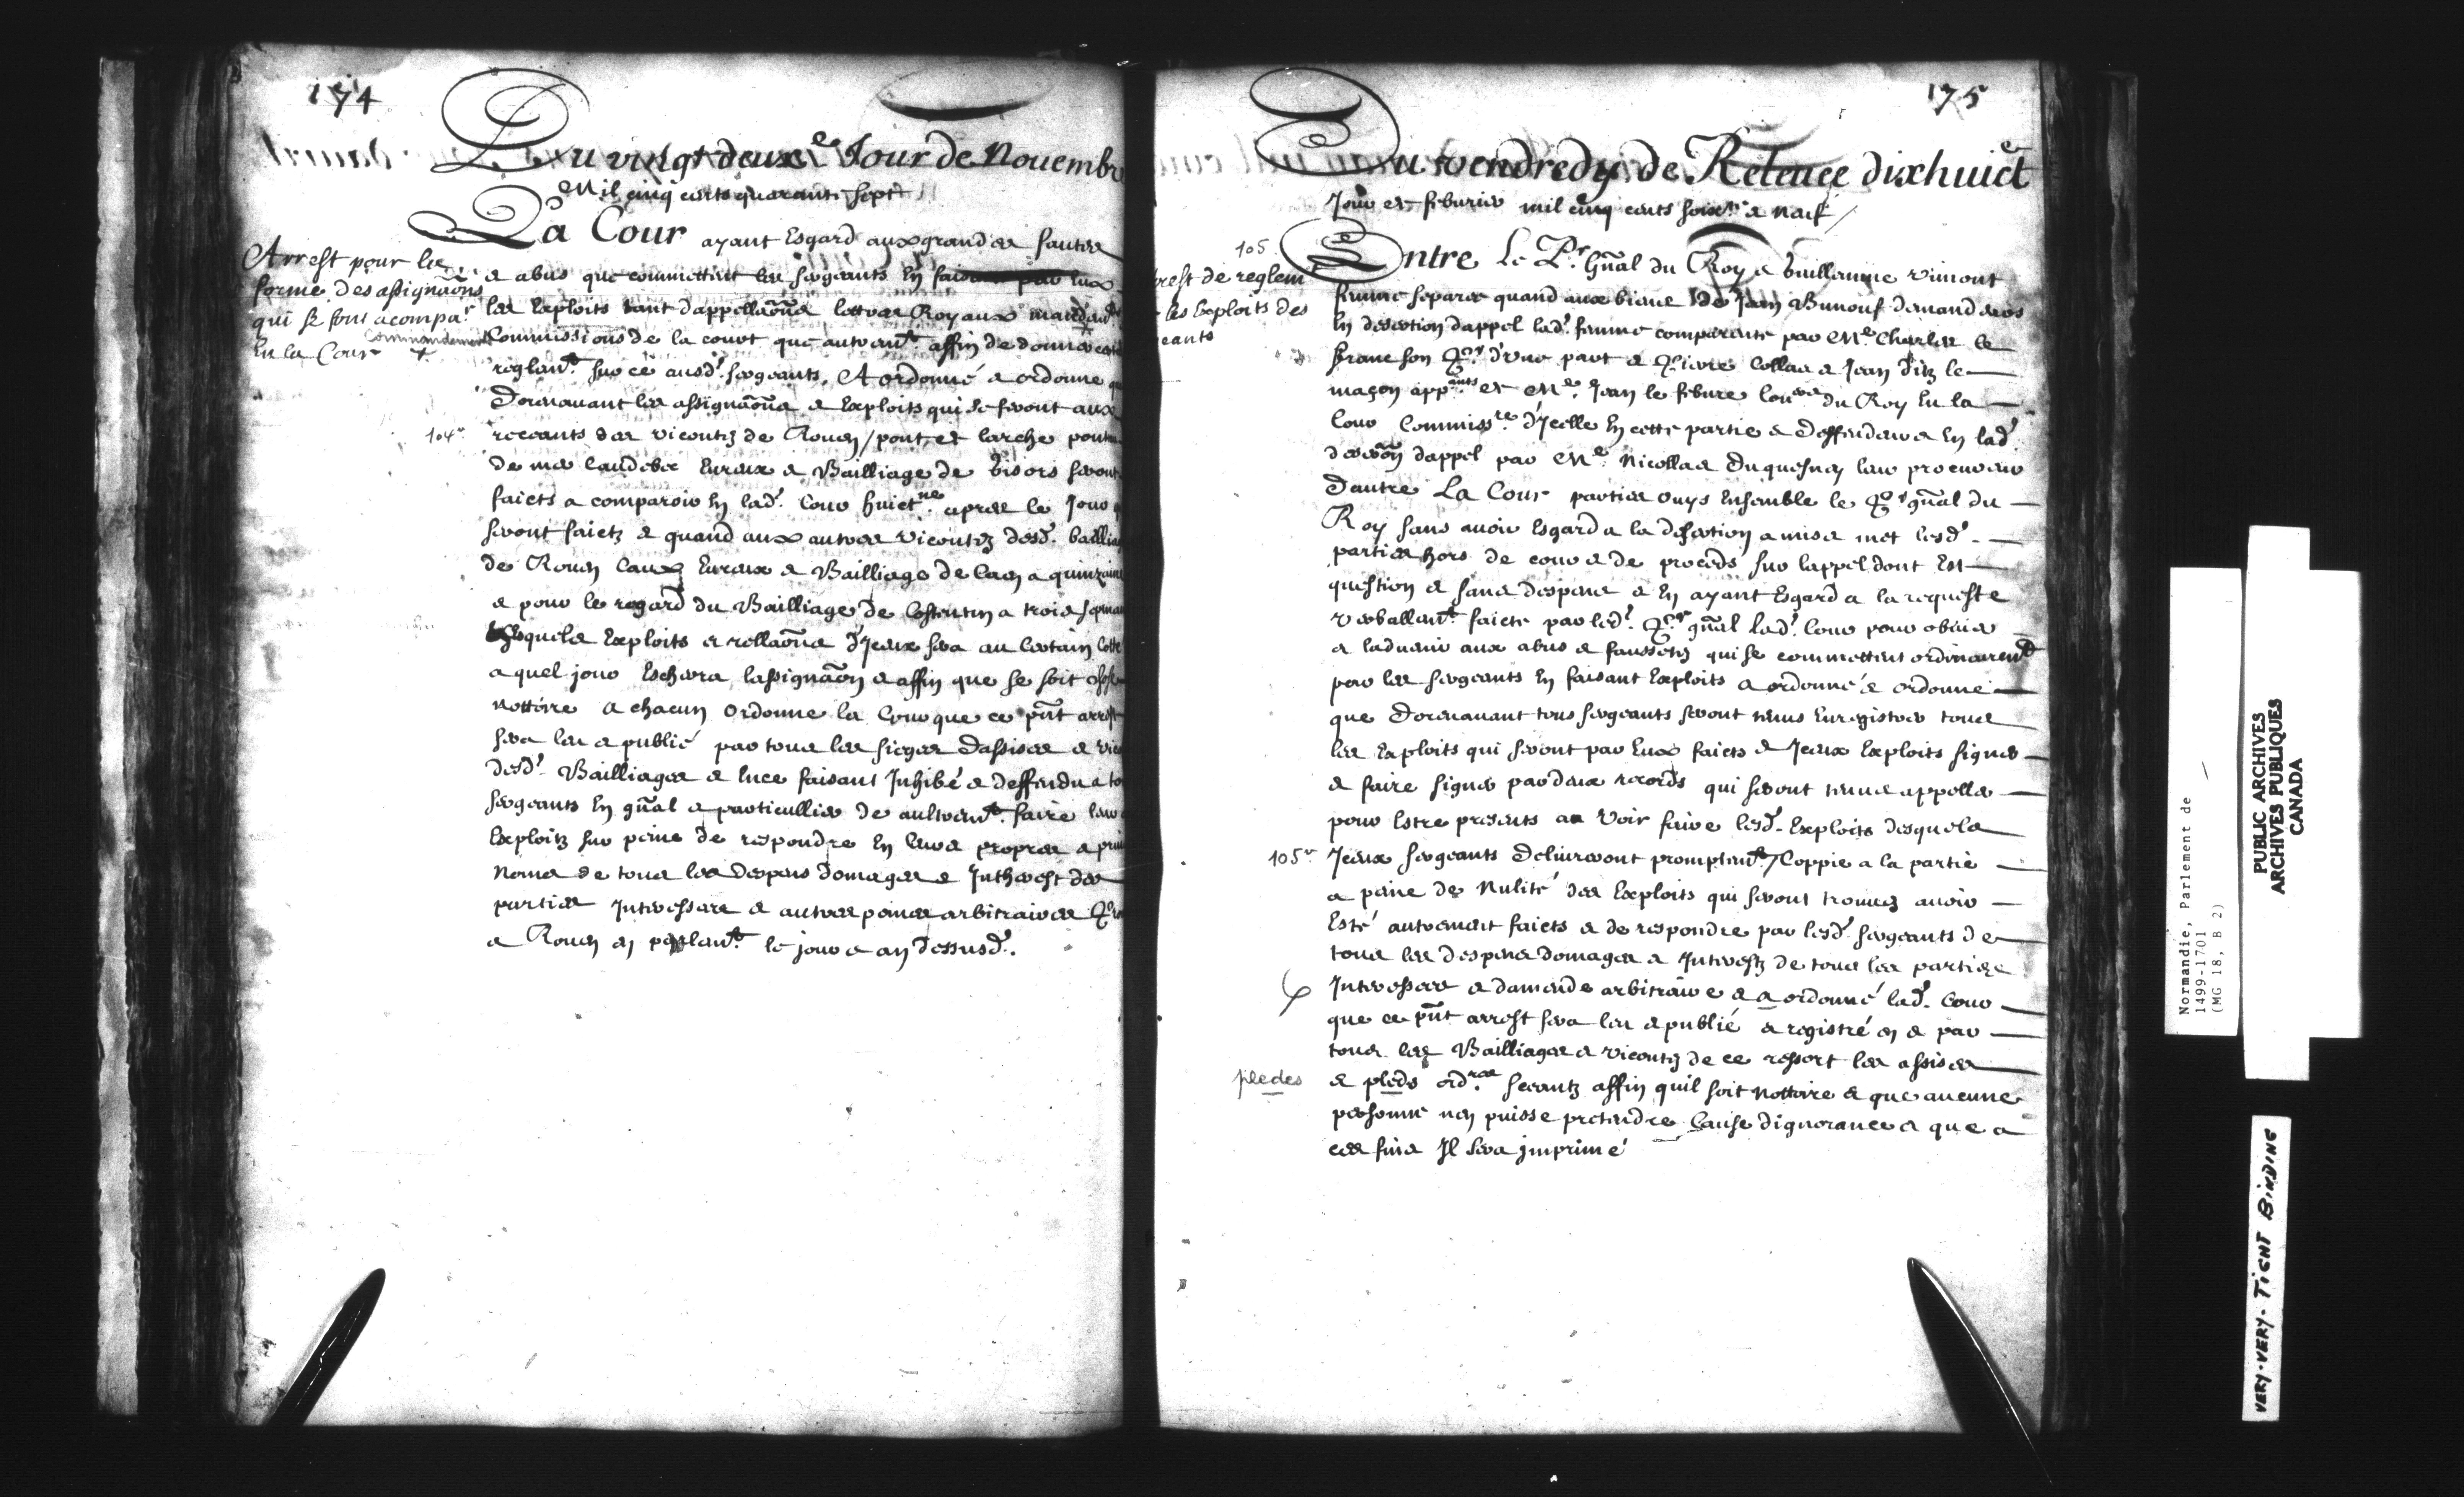 174
Du vingt deuxe Jour de Nouembr
Mil cinq cents quarante sept
La Cour ayant Esgard aux grandes fautes
Arrest pour la
forme des assignaõns
qui se font a comp
En la Cour
commandement
& abus que commettent les sergeants En fais
les Exploits tant d'appellaõns lettres Royaux mandem.t
Commissions de la court que autrem.t affin de donner cert
reglem.t sur ce ausd. sergeants, A ordonné & ordonne q
Dorenauant les assignaõns & Exploits qui se feront aux
104v
resceants des vicontez de Rouen / pont de larche ponteau
de mer Caudebec Eureux & Bailliage de Gisors seront
faicts a comparoir En lad. Cour huict.ne apres le Jour q
seront faictz & quand aux autres vicontez desd. baillia
de Rouen Caux Eureux & Bailliage de Caen a quinzaine
& pour le regard du Bailliage de Costentin a trois sepmai
Esquels Exploits & rellaõns d'Jceux sera au certain Cotté
a quel jour Escherra lassignaõn & affin que se soit chose
nottoire a chacun Ordonne la Cour que ce pñt arrest
sera leu & publié par tous les sieges dassises & vico
desd. Bailliages & Ince faisant Inhibé & deffendu a to
sergeants En gñal & particullier de aultrem.t faire leurs
Exploitz sur peine de respondre En leurs propres & priu
Noms de tous les despens domages & Inthrest des
parties Interessees & autres peines arbitraires
a Rouen en parlem.t le jour & an dessusd.
175
Du vendredy de Releuee dixhuict
Jour de feburier mil cinq cents soix.te & neuf /
105
rrest de reglem
les Exploits des
geants
Entre Le Pr. Gñal du Roy & Guillemine vimont
femme separee quand aux biens de Jean Bunouf demandeurs
En desertion d'appel lad. femme comparente par Me. Charles le
franc son Pr. d'une part & Pierre Collas & Jean ditz le
maçon app.ants de Me. Jean le febure Con.er du Roy En la
Cour Commiss.re d'Jcelle En cette partie & deffendeurs En lad.
deseröñ d'appel par Me. Nicollas Duquesney leur procureur
Dautre La Cour parties ouys Ensemble le Pr. gñal du
Roy sans auoir Esgard a la desertion a mis & met lesd.
parties hors de cour & de proceds sur lappel dont Est
question & sans despens & En ayant Esgard a la requeste
verballem.t faicte par led. Pr. gñal Lad. Cour pour obuier
a laduenir aux abus & faussetez qui se commettent ordinairem.t
par les sergeants En faisant Exploits a ordonné & ordonne
que Dorenauant tous sergeants seront tenus Enregistrer tous
les Exploits qui seront par Eux faicts & Jceux Exploits signer
& faire signer par deux records qui seront tenus appeller
pour Estre presents au voir faire lesd. Exploits desquels
105v
Jceux sergeants deliureront promptem.t / Coppie a la partie
a peine de Nulité des Exploits qui seront trouuez auoir
Esté autrement faicts & de respondre par lesd. sergeants de
tous les despens domages & Interestz de tous les parties
Interessees & damende arbitraire & a ordonné lad. Cour
que ce pñt arrest sera leu & publié & registré en & par
tous les Bailliages & vicontez de ce ressort les assises
pledes
& pleds ord.res seeantz affin quil soit nottoire & que aucune
personne nen puisse pretendre Cause d'ignorance & que a
ces fins Il sera jmprimé
Normandie, Parlement de
1499-1701
(MG 18, B 2)
PUBLIC ARCHIVES
ARCHIVES PUBLIQUES
CANADA
VERY-VERY-TIGHT BINDING